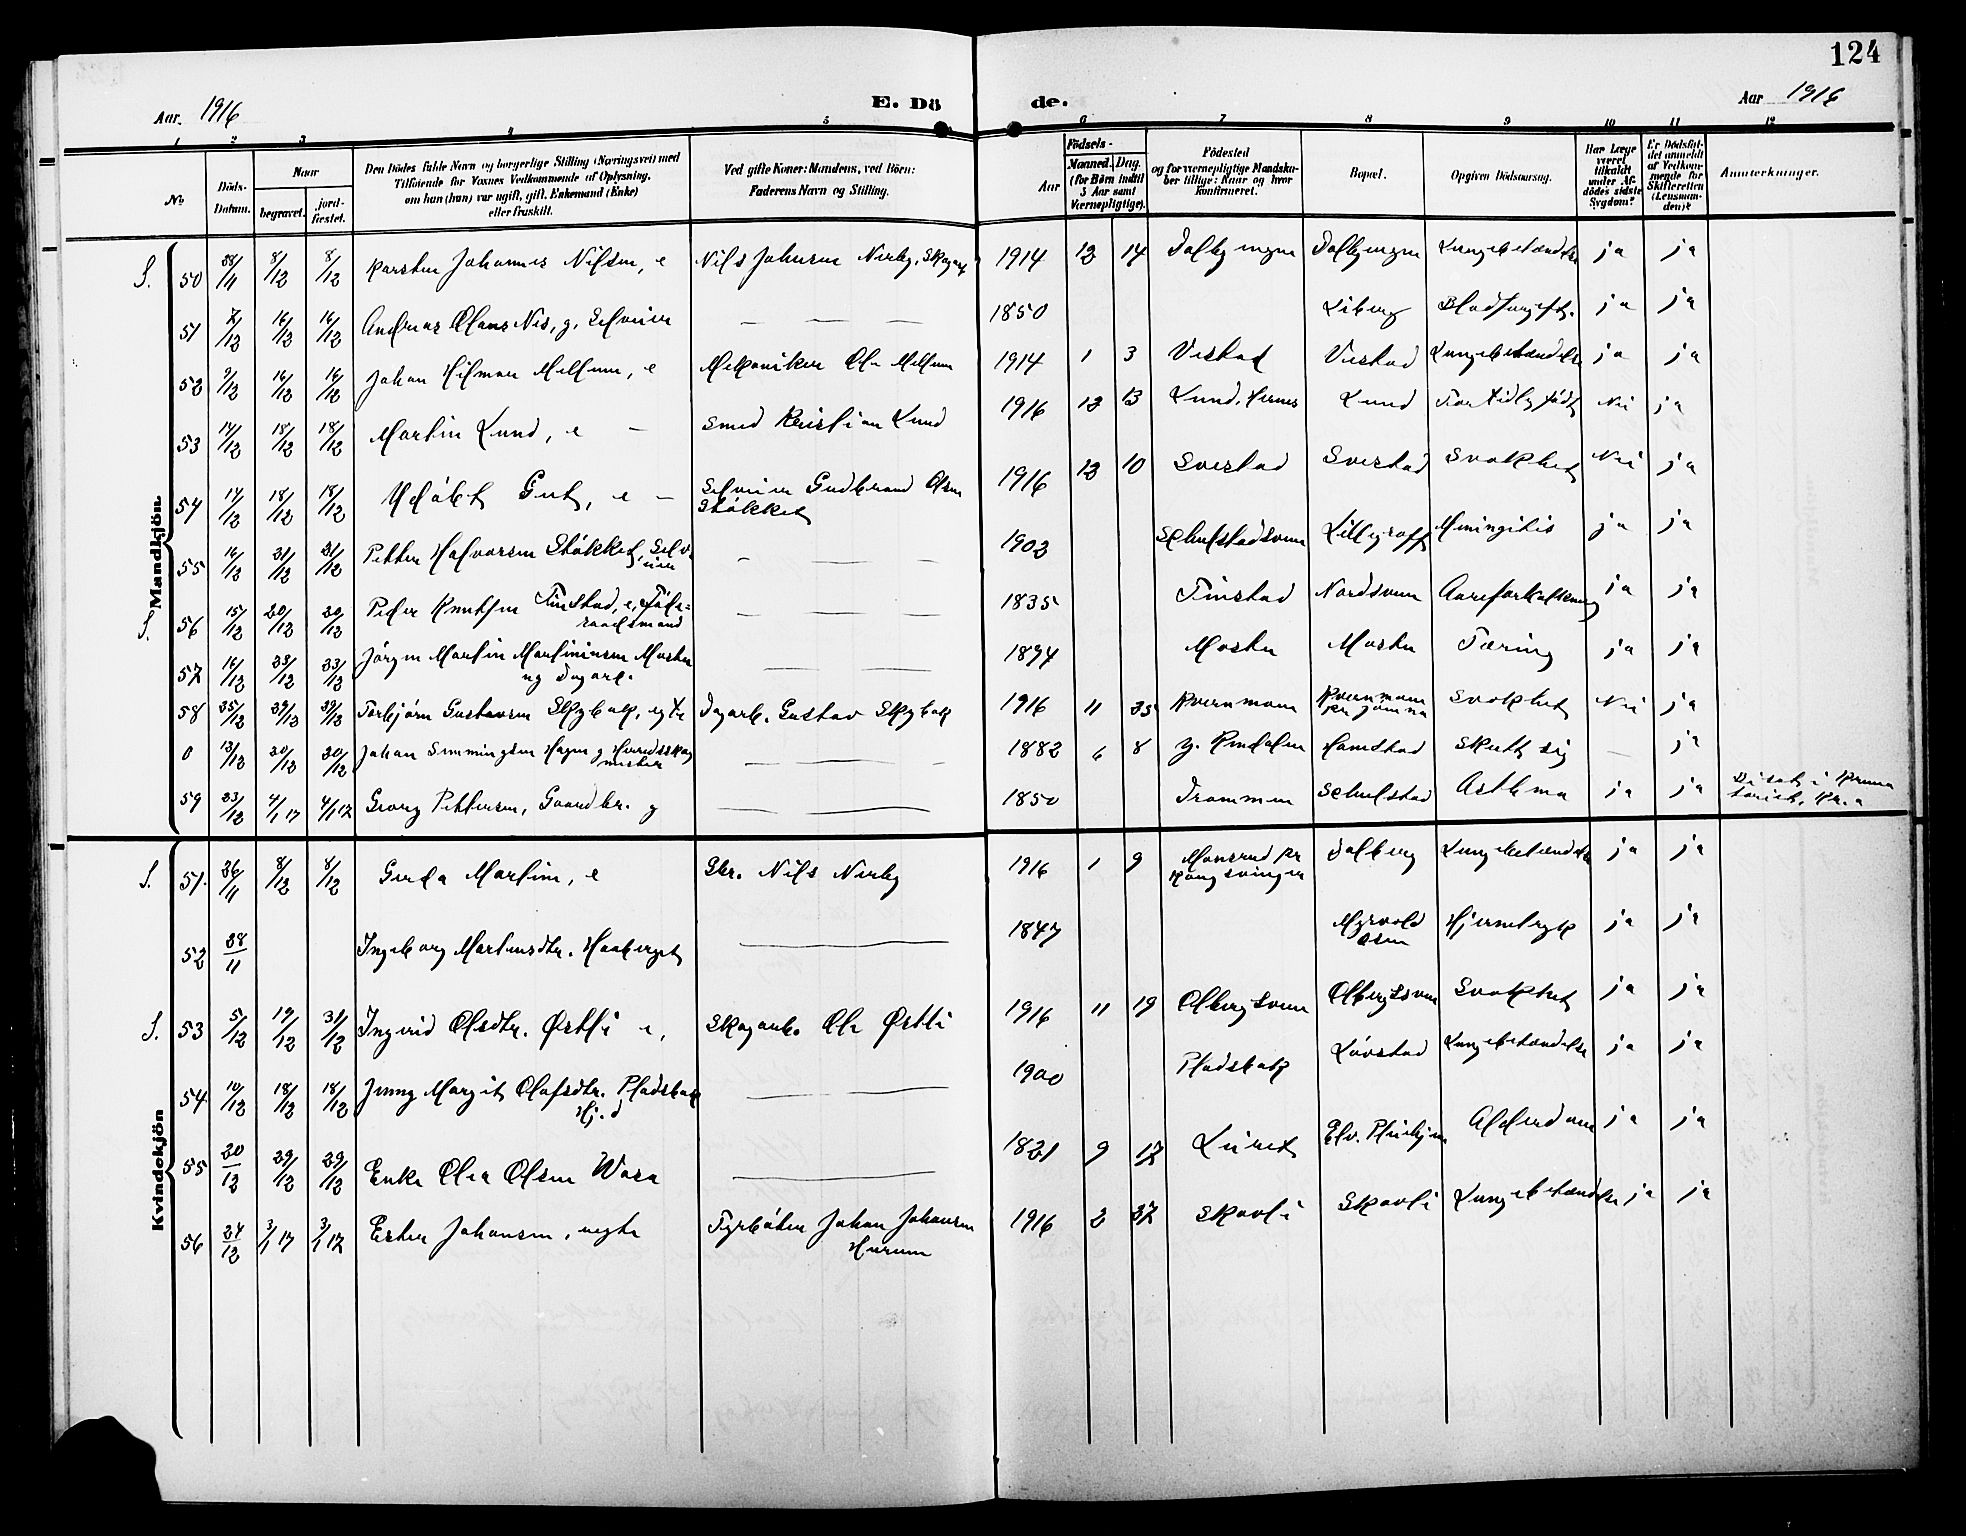 124
Aar 1916
E. Dö
de.
Aar 1916
1 2 3 4 5 6 7 8 9 10 11 12
No
Döds-Datum.
Naar
begravet.
jord-fæstet.
Den Dödes fulde Navn og borgerlige Stilling (Næringsvei) med
Tilföiende for Voxnes Vedkommende af Oplysning,
om han (hun) var ugift, gift, Enkemand (Enke)
eller fraskilt.
Ved gifte Koner: Mandens, ved Börn:
Faderens Navn og Stilling.
Födsels-
Aar
Maaned. Dag.
(for Börn indtil
5 Aar samt
Værnepligtige).
Födested
og for værnepligtige Mandska-
ber tillige: Naar og hvor
konfirmeret.
Bopæl.
Opgiven Dödsaarsag.
Har Læge
været
tilkaldt
under Af-
dödes sidste
Sygdom?
Er Dödsfal-
det anmeldt
af Vedkom-
mende for
Skifteretten
(Lensman-
den)?
Anmerkninger.
Mandkjön
S. 50 28/11 8/12 8/12 Karsten Johannes Nilsen, e Nils Johnsen Nirby, Skogarb 1914 12 14 Dalbyengen Dalbyengen Lungebetændelse ja ja
51 7/12 16/12 16/12 Andreas Olaus Nis, g. Selveier — — — 1850 Liberg Blodforgift. ja ja
52 9/12 16/12 16/12 Johan Hilmar Mellum, e Mekaniker Ole Mellum 1914 1 3 Vestad Vestad Lungebetændelse ja ja
53 14/12 18/12 18/12 Martin Lund, e — Smed Kristian Lund 1916 12 13 Lund, Hernes Lund For tidlig født Nei ja
54 14/12 18/12 18/12 Udöbt Gut, e — Selveier Gudbrand Olsen
Stökket 1916 12 10 Sverstad Sverstad Svakhet Nei ja
55 16/12 21/12 21/12 Petter Halvorsen Stökket, Selv-
eier — — — 1902 Schulstadsveen Lillegraff Meningitis ja ja
S. 56 15/12 20/12 20/12 Peder Knutsen Finstad, e, Föde-
raadsmand — — — 1835 Finstad Nordsveen Aareforkalkning ja ja
57 16/12 23/12 23/12 Jörgen Martin Martiniusen Mosten
ug Dagarb. — — — 1894 Mosten Mosten Tæring ja ja
58 25/12 29/12 29/12 Torbjörn Gustavsen Skybak, egte Dagarb. Gustav Skybak 1916 11 25 Kvernmoen Kvernmoen
pr Jömna Svakhet Nei ja
0 13/12 20/12 20/12 Johan Simmingsen Hagen g Herredsskog
mester — — — 1882 6 8 y. Rendalen Hamstad Skutt sig — ja
59 23/12 4/1 17 4/1 17 Georg Pettersen, Gaardbr. g — — — 1850 Drammen Schulstad Asthma ja ja
Kvindekjön
S. 51. 26/11 8/12 8/12 Gerda Marline, e Gbr. Nils Nirby 1916 1 9 Monsrud pr
Kongsvinger Dalberg Lungebetændelse ja ja
52 28/11 Ingeborg Mortensdtr. Haaberget — 1847 Myrvold
Hjernetryk ja ja
S. 53 5/12 19/12 21/12 Ingrid Olsdtr. Østli e, Skogarb. Ole Østli 1916 11 19 Olbergsveen Olbergsveen Svakhet ja ja
54 10/12 18/12 18/12 Jenny Margit Olafsdtr. Pladsbak
Hj.d — 1900 Pladsbak Lövstad Lungebetændelse ja ja
55 20/12 29/12 29/12 Enke Olea Olsen Wasa — 1821 9 17 Lüret Elv. Pleiehjem Alderdom ja ja
56 24/12 3/1 17 3/1 17 Ester Johansen, uegte Fyrböter Johan Johansen
Hurum 1916 2 27 Skovli Skovli Lungebetændelse ja ja